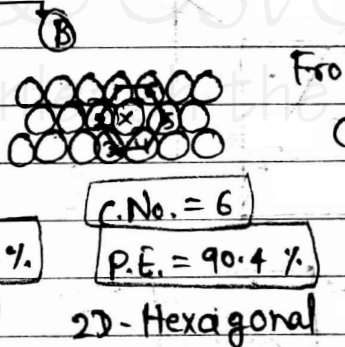 B
Fro
x
C.No. = 6
%.
P.E. = 90.4 %.
2D-Hexagonal